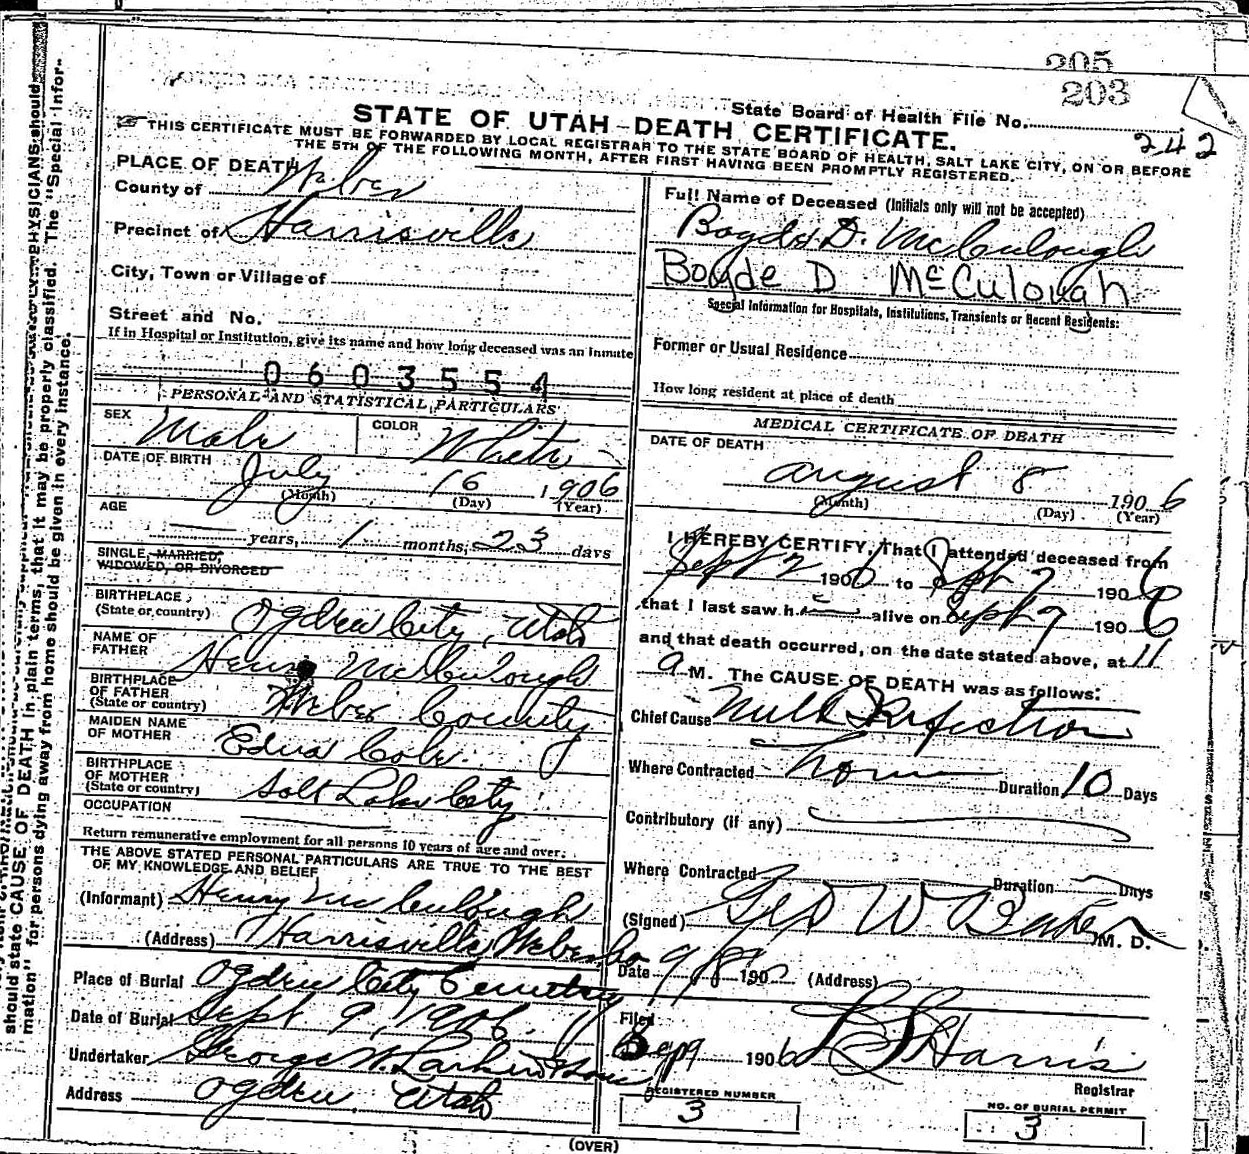 205
203
State Board of Health File No.
242
STATE OF UTAH-DEATH CERTIFICATE.
THIS CERTIFICATE MUST BE FORWARDED BY LOCAL REGISTRAR TO THE STATE BOARD OF HEALTH, SALT LAKE CITY, ON OR BEFORE
THE 5TH OF THE FOLLOWING MONTH, AFTER FIRST HAVING BEEN PROMPTLY REGISTERED.
PLACE OF DEATH
County of Weber
Precinct of Harrisville
City, Town or Village of
Street and No.
If in Hospital or Institution, give its name and how long deceased was an Inmate
0603554
PERSONAL AND STATISTICAL PARTICULARS
SEX Male COLOR White
DATE OF BIRTH July 16 1906
(Month) (Day) (Year)
AGE
years, 1 months, 23 days
SINGLE, MARRIED,
WIDOWED, OR DIVORCED
BIRTHPLACE
(State or country) Ogden City, Utah
NAME OF
FATHER Henry McCulough
BIRTHPLACE
OF FATHER
(State or country) Weber County
MAIDEN NAME
OF MOTHER Edna Cole
BIRTHPLACE
OF MOTHER
(State or country) Salt Lake City
OCCUPATION
Return remunerative employment for all persons 10 years of age and over.
THE ABOVE STATED PERSONAL PARTICULARS ARE TRUE TO THE BEST
OF MY KNOWLEDGE AND BELIEF
(Informant) Henry McCulough
(Address) Harrisville Weber Co
Place of Burial Ogden City Cemetery
Date of Burial Sept 9, 1906
Undertaker George W. Larkin & Sons
Address Ogden, Utah
Full Name of Deceased (Initials only will not be accepted)
Boyde D. McCulough
Boyde D McCulough
Special Information for Hospitals, Institutions, Transients or Recent Residents:
Former or Usual Residence
How long resident at place of death
MEDICAL CERTIFICATE OF DEATH
DATE OF DEATH
august 8 1906
(Month) (Day) (Year)
I HEREBY CERTIFY, That I attended deceased from
Sept 2 1906 to Sept 7 1906
that I last saw h alive on Sept 7 1906
and that death occurred, on the date stated above, at 11
a M. The CAUSE OF DEATH was as follows:
Chief Cause Milk Infection
Where Contracted home Duration 10 Days
Contributory (if any)
Where Contracted Duration Days
(Signed) Geo W Baker M. D.
Date 9/8 190 (Address)
Filed
Sep 9 1906 Harris
Registrar
REGISTERED NUMBER
3
NO. OF BURIAL PERMIT
3
(OVER)
PHYSICIANS should
should state CAUSE OF DEATH in plain terms, that it may be properly classified. The "Special Infor-
mation" for persons dying away from home should be given in every instance.